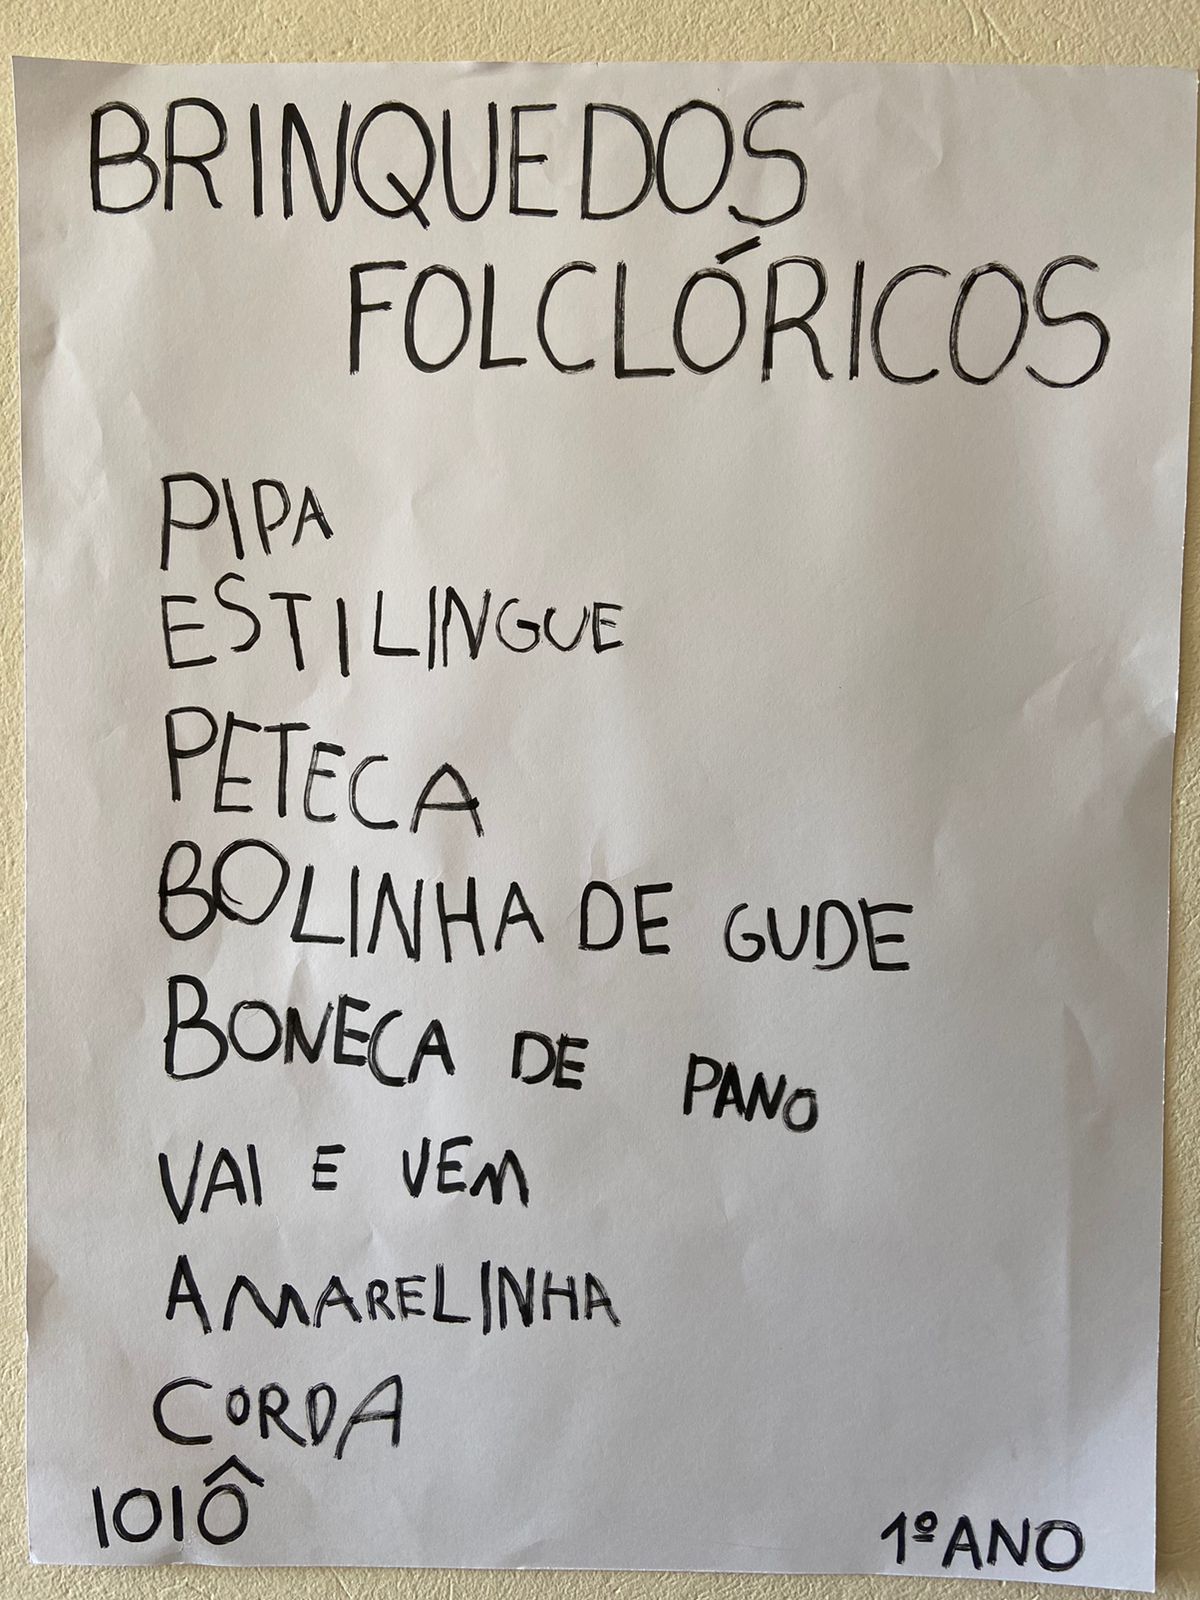 BRINQUEDOS
FOLCLÓRICOS
PIPA
ESTILINGUE
PETECA
BOLINHA DE GUDE
BONECA DE PANO
VAI E VEM
AMARELINHA
CORDA
IOIÔ
1º ANO